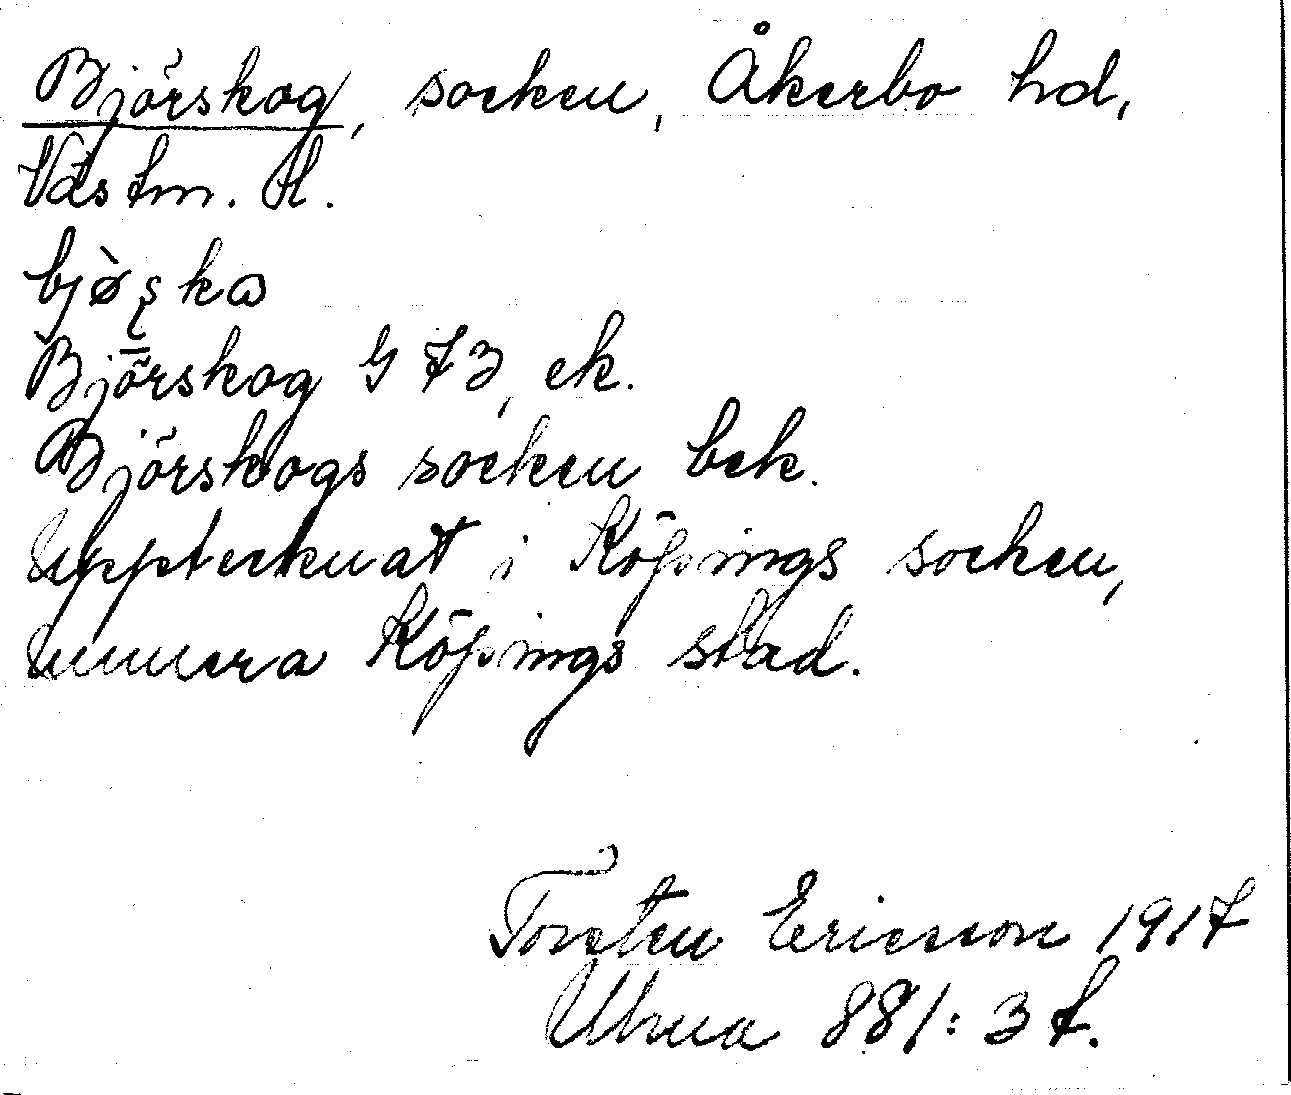 Björskog, socken, Åkerbo hd,
Västm. l.
bjø̀ʂka
Björskog G 73, ek.
Björskogs socken bek.
Upptecknat i Köpings socken,
numera Köpings stad.
Torsten Ericsson 1917
Ulma 881:37.